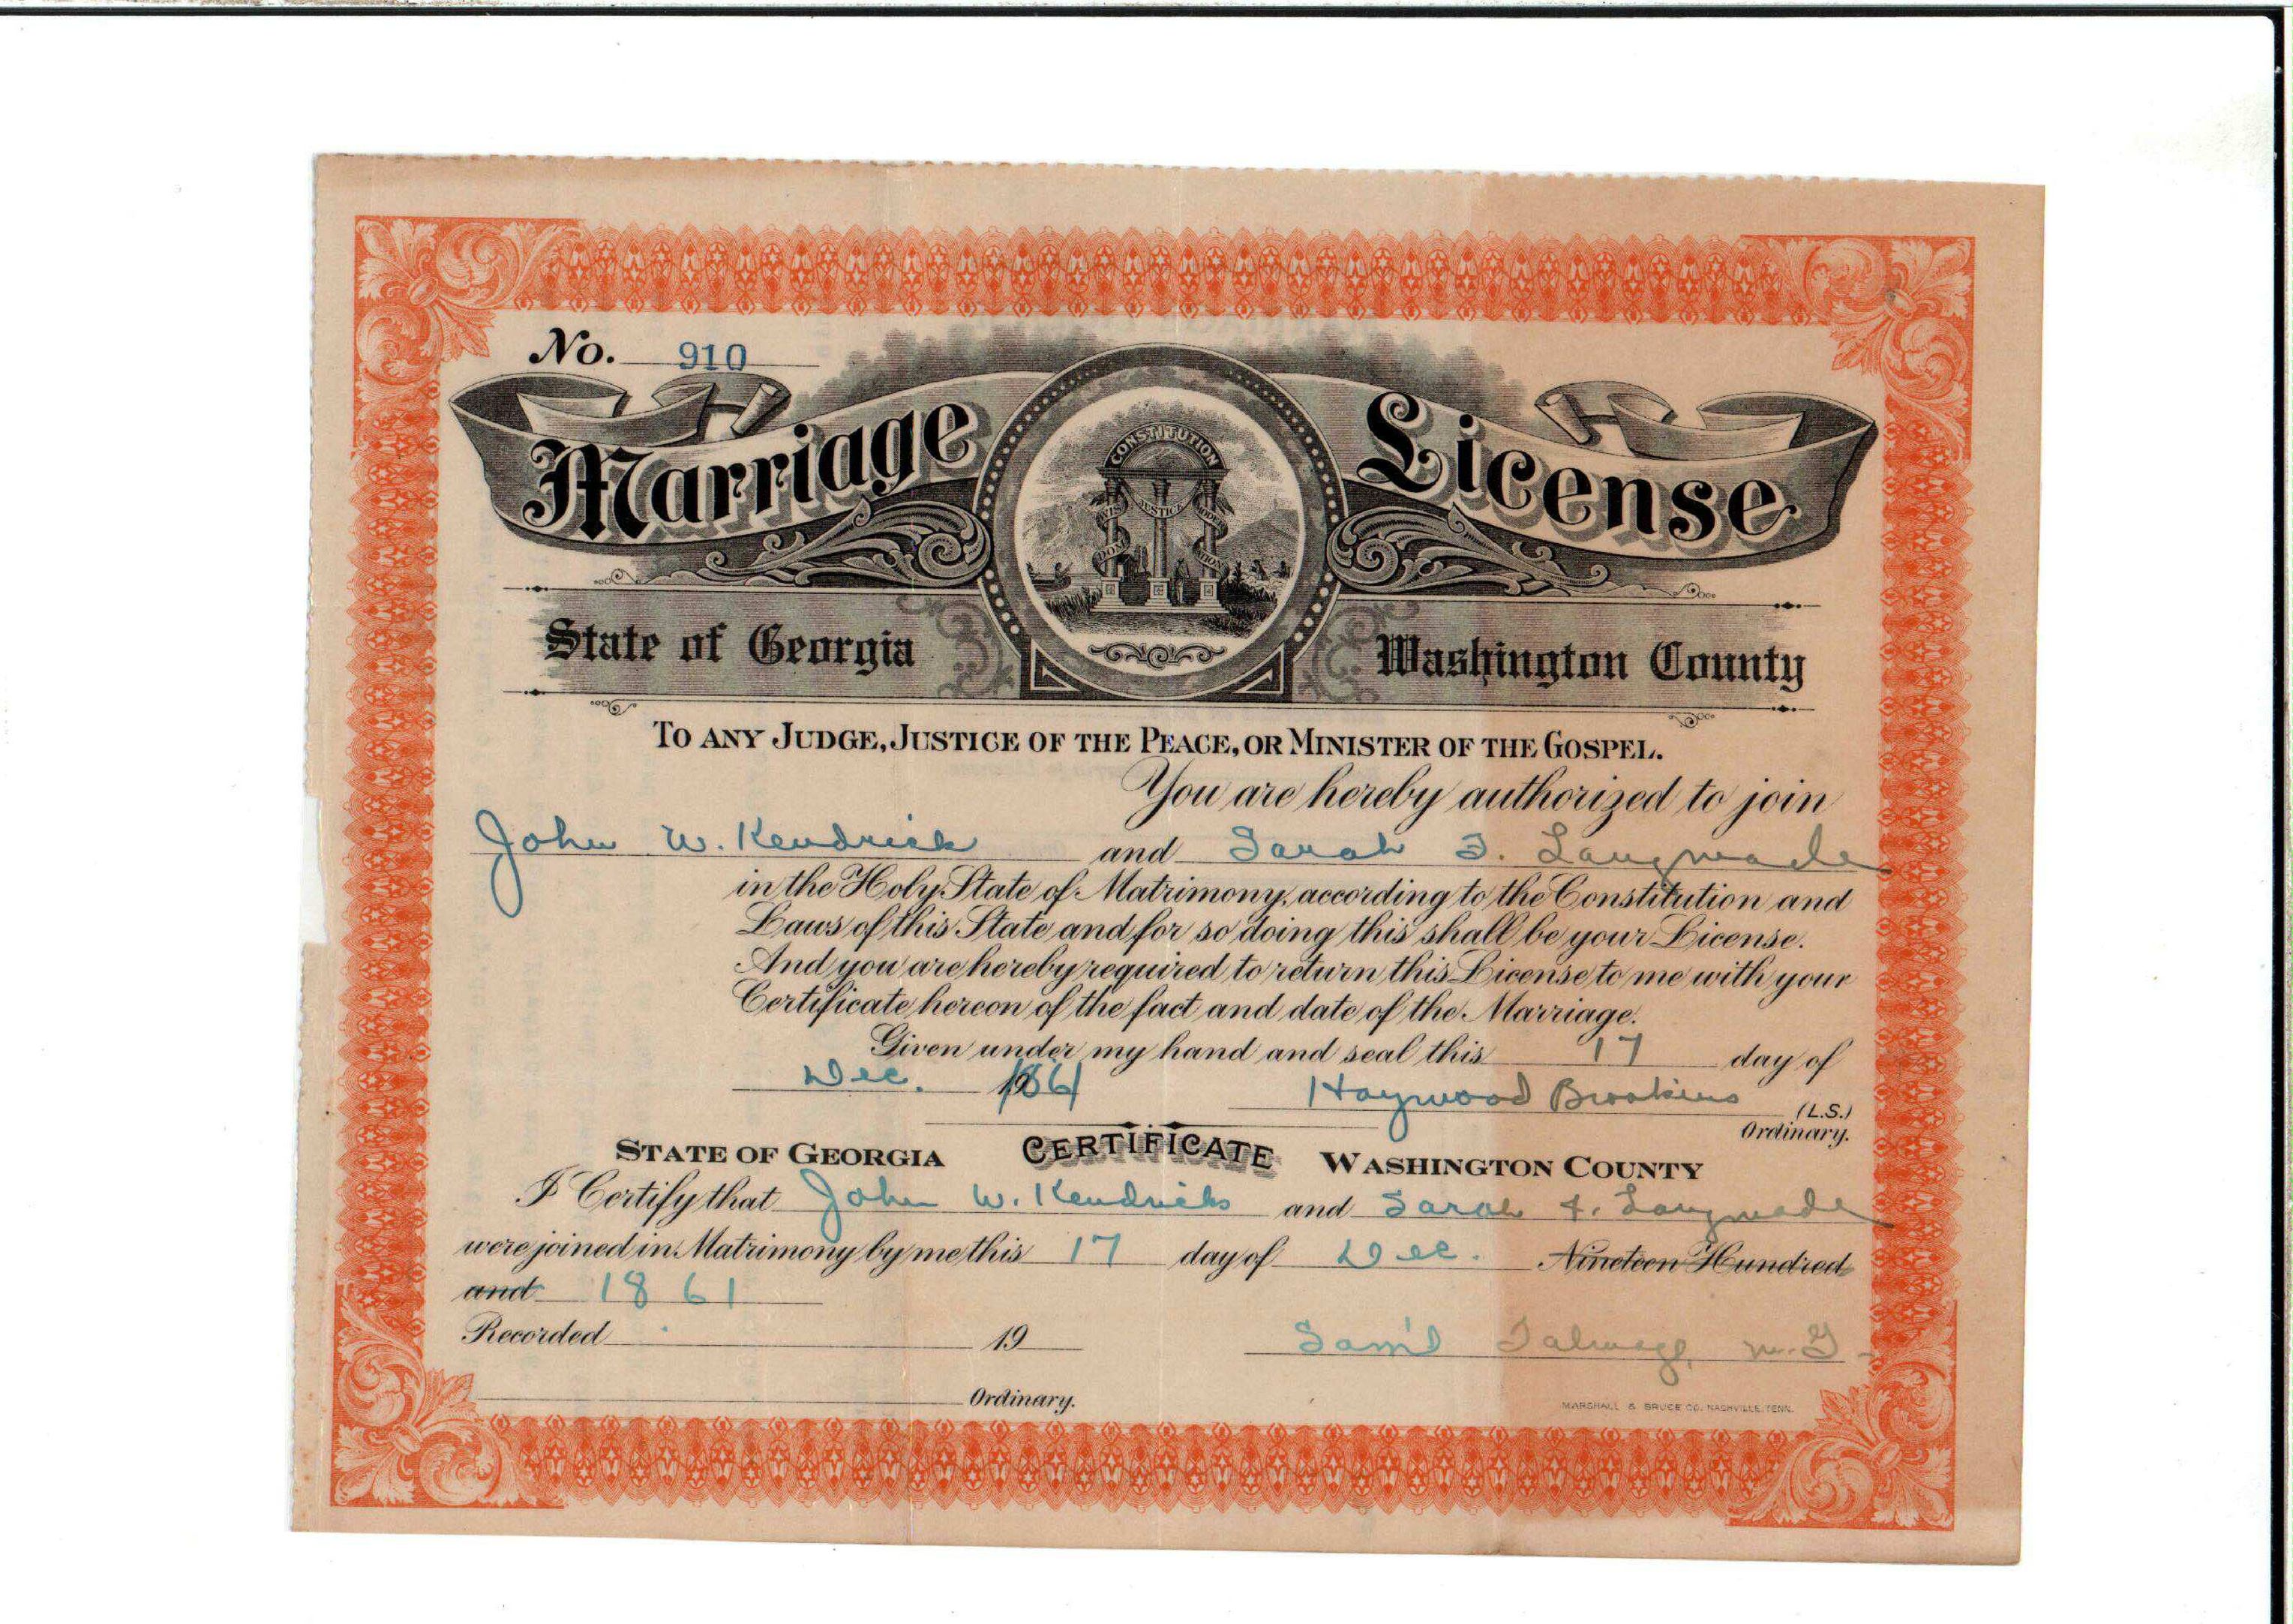 No. 910
Marriage License
CONSTITUTION
WISDOM JUSTICE MODERATION
State of Georgia Washington County
TO ANY JUDGE, JUSTICE OF THE PEACE, OR MINISTER OF THE GOSPEL.
You are hereby authorized to join
John W. Kendrick and Sarah F. Langmade
in the Holy State of Matrimony, according to the Constitution and
Laws of this State and for so doing this shall be your License.
And you are hereby required to return this License to me with your
Certificate hereon of the fact and date of the Marriage.
Given under my hand and seal this 17 day of
Dec. 1861 Haywood Brookins (L.S.)
Ordinary.
STATE OF GEORGIA CERTIFICATE WASHINGTON COUNTY
I Certify that John W. Kendricks and Sarah F. Langmade
were joined in Matrimony by me this 17 day of Dec. Nineteen Hundred
and 1861
Recorded 19 Sam'l Talmage, M.G.
Ordinary.
MARSHALL & BRUCE CO. NASHVILLE, TENN.